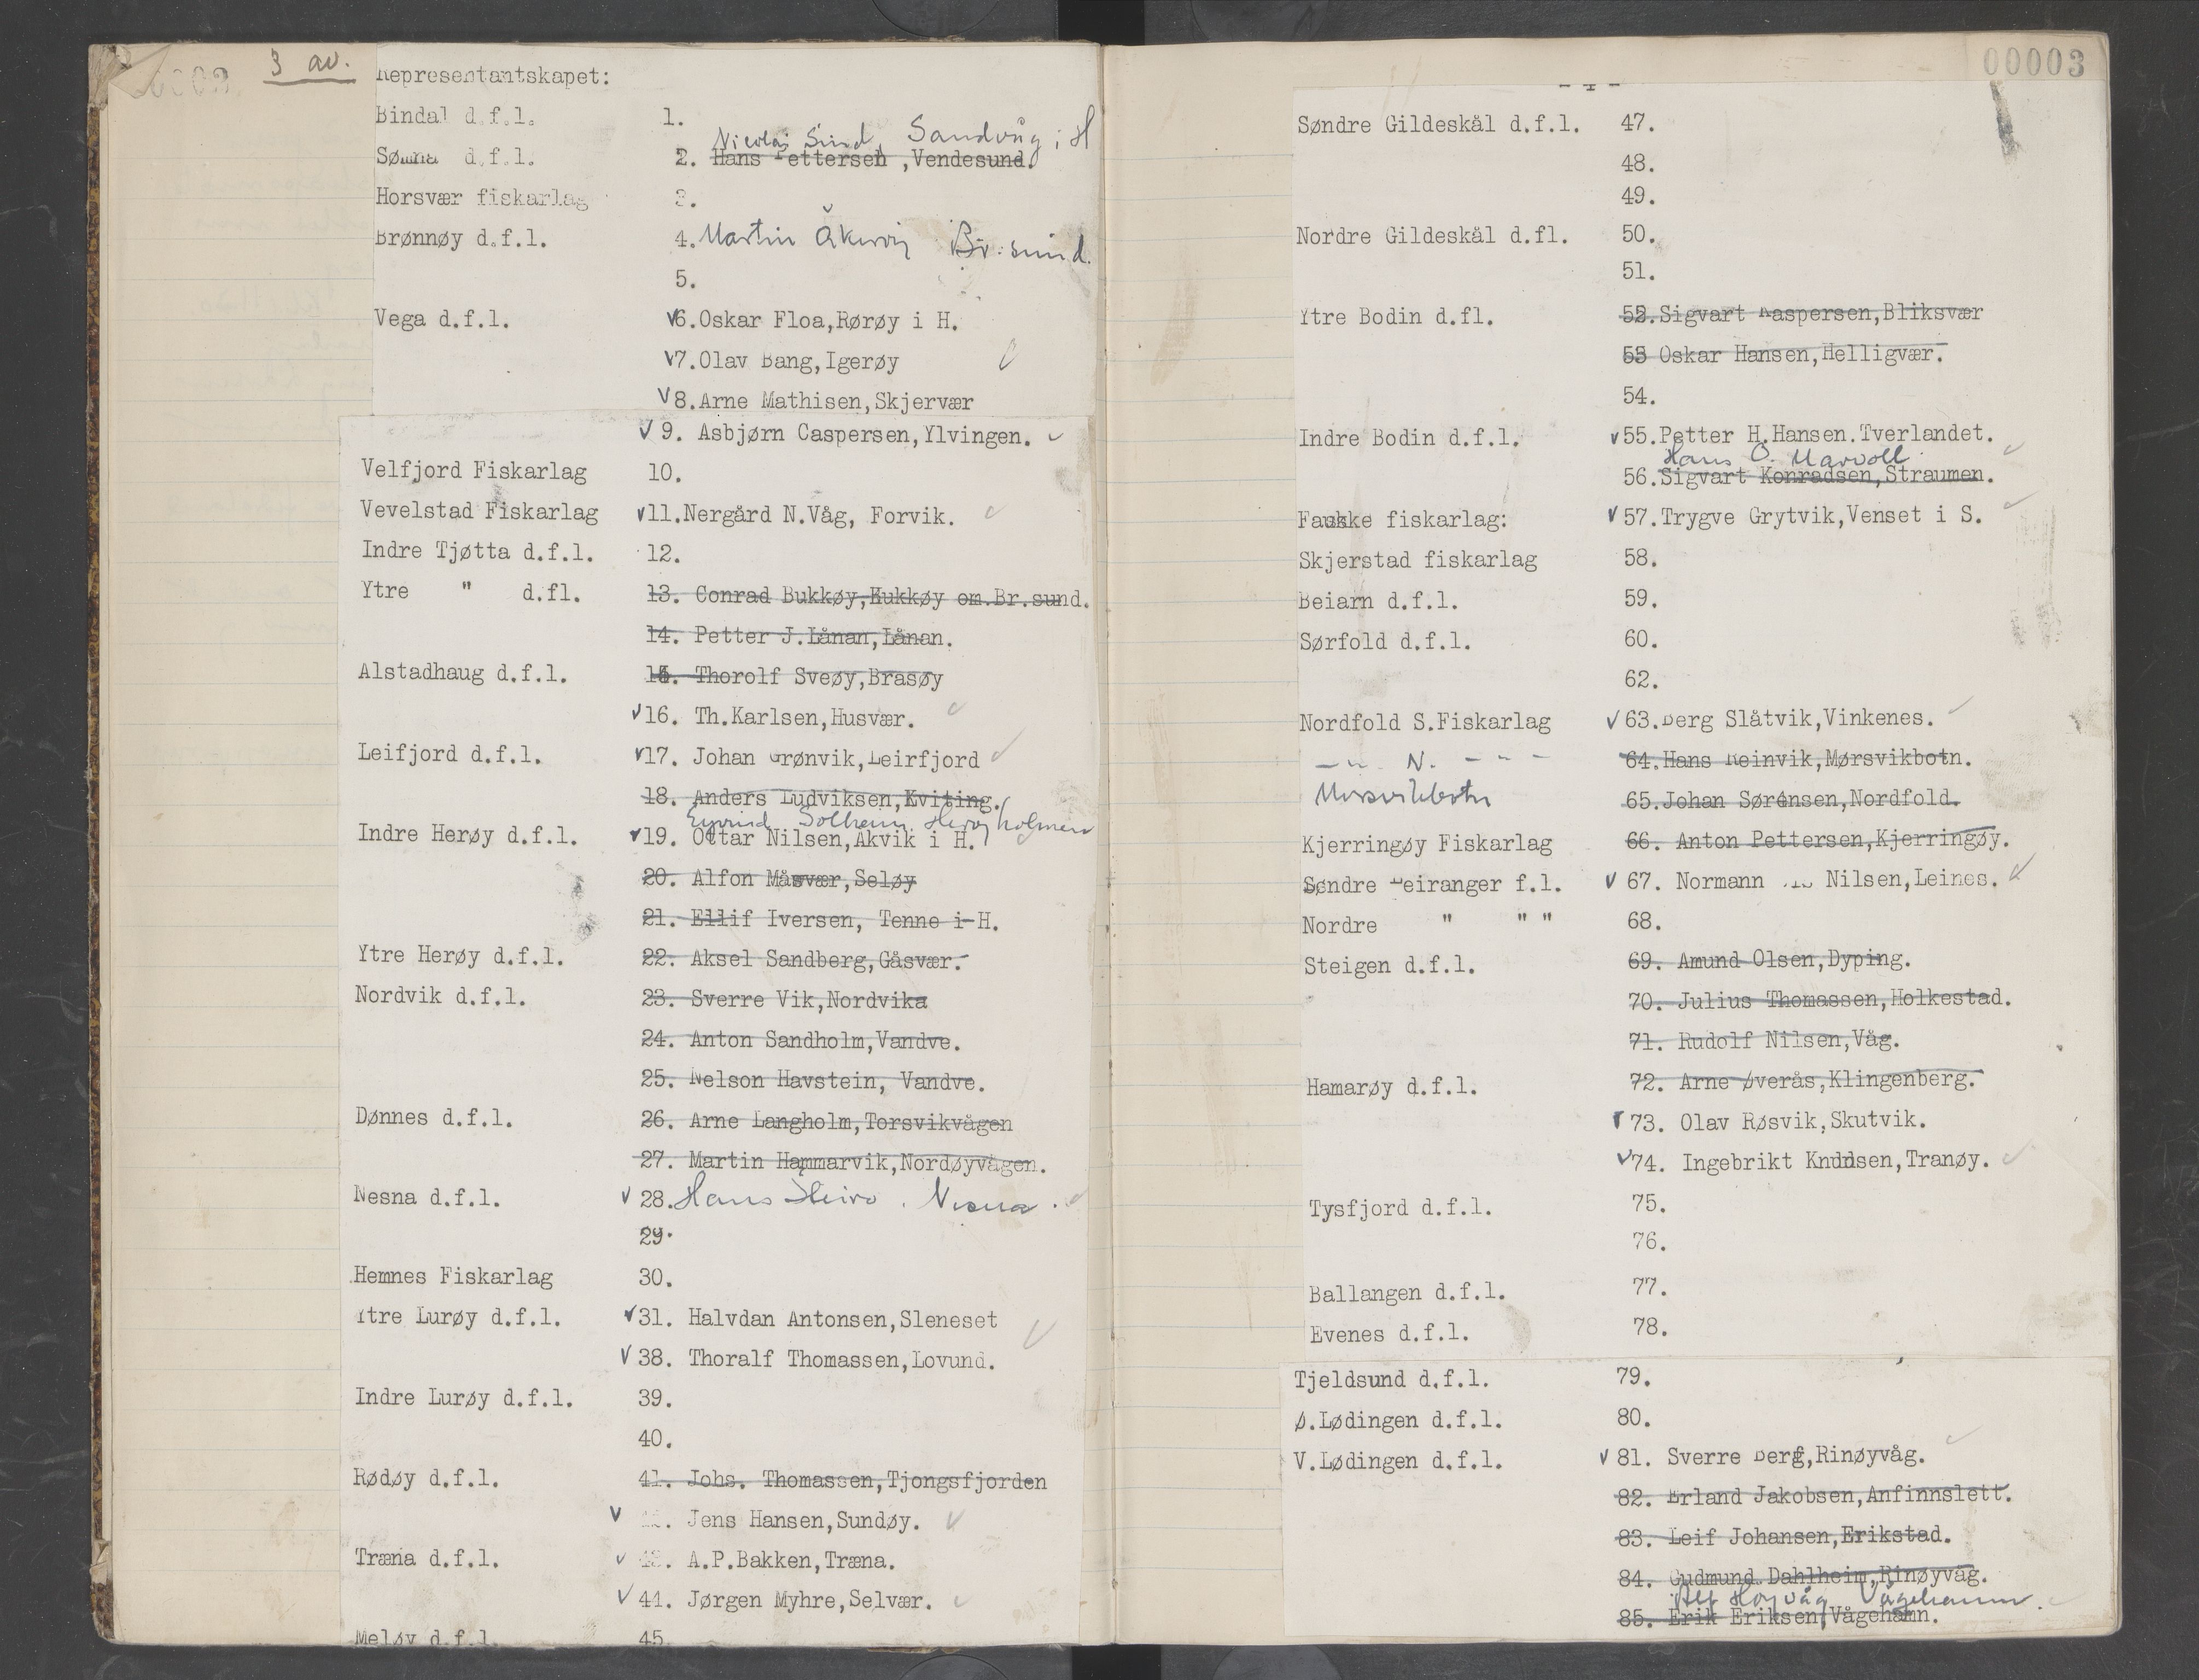 3 av.
Representantskapet:
Bindal d.f.l. 1.
Nicolai Sund, Sandvåg i H
Sømna d.f.l. 2. Hans Pettersen ,Vendesund.
Horsvær fiskarlag 3.
Brønnøy d.f.l. 4. Martin Åkervig Br.sund.
5.
Vega d.f.l. V6.Oskar Floa,Rørøy i H.
V7.Olav Bang,Igerøy
V8.Arne Mathisen,Skjervær
V 9. Asbjørn Caspersen,Ylvingen.
Velfjord Fiskarlag 10.
Vevelstad Fiskarlag V11.Nergård N.Våg, Forvik.
Indre Tjøtta d.f.l. 12.
Ytre " d.fl. 13. Conrad Bukkøy,Kukkøy om.Br.sund.
14. Petter J.Lånan,Lånan.
Alstadhaug d.f.l. 15. Thorolf Sveøy,Brasøy
V16. Th.Karlsen,Husvær.
Leifjord d.f.l. V17. Johan Grønvik,Leirfjord
18. Anders Ludviksen,Kviting.
Eyvind Solheim, Herøyholmen
Indre Herøy d.f.l. V19. Ottar Nilsen,Åkvik i H.
20. Alfon Måsvær,Seløy
21. Ellif Iversen, Tenne i H.
Ytre Herøy d.f.l. 22. Aksel Sandberg,Gåsvær.
Nordvik d.f.l. 23. Sverre Vik,Nordvika
24. Anton Sandholm,Vandve.
25. Nelson Havstein, Vandve.
Dønnes d.f.l. 26. Arne Langholm,Torsvikvågen
27. Martin Hammarvik,Nordøyvågen.
Nesna d.f.l. V 28. Hans . Nesna.
29.
Hemnes Fiskarlag 30.
Ytre Lurøy d.f.l. V31. Halvdan Antonsen,Sleneset
V 38. Thoralf Thomassen,Lovund.
Indre Lurøy d.f.l. 39.
40.
Rødøy d.f.l. 41. Johs. Thomassen,Tjongsfjorden
V Jens Hansen,Sundøy.
Træna d.f.l. V 43. A.P.Bakken,Træna.
V 44. Jørgen Myhre,Selvær.
Meløy d.f.l. 45.
00003
- 4 -
Søndre Gildeskål d.f.l. 47.
48.
49.
Nordre Gildeskål d.fl. 50.
51.
Ytre Bodin d.fl. 52.Sigvart Kaspersen,Bliksvær
53 Oskar Hansen,Helligvær.
54.
Indre Bodin d.f.l. V55.Petter H.Hansen.Tverlandet.
Hans O. Marvoll
56.Sigvart Konradsen,Straumen.
Fauske fiskarlag: V 57.Trygve Grytvik,Venset i S.
Skjerstad fiskarlag 58.
Beiarn d.f.l. 59.
Sørfold d.f.l. 60.
62.
Nordfold S.Fiskarlag V 63.Berg Slåtvik,Vinkenes.
— " — N. — " — 64.Hans Reinvik,Mørsvikbotn.
Mørsvikbotn 65.Johan Sørensen,Nordfold.
Kjerringøy Fiskarlag 66. Anton Pettersen,Kjerringøy.
Søndre Leiranger f.l. V 67. Normann Nilsen,Leines.
Nordre " " " 68.
Steigen d.f.l. 69. Amund Olsen,Dyping.
70. Julius Thomassen,Holkestad.
71. Rudolf Nilsen,Våg.
Hamarøy d.f.l. 72. Arne Øverås,Klingenberg.
V 73. Olav Røsvik,Skutvik.
V74. Ingebrikt Knudsen,Tranøy.
Tysfjord d.f.l. 75.
76.
Ballangen d.f.l. 77.
Evenes d.f.l. 78.
Tjeldsund d.f.l. 79.
Ø.Lødingen d.f.l. 80.
V.Lødingen d.f.l. V 81. Sverre Berg,Rinøyvåg.
82. Erland Jakobsen,Anfinnslett.
83. Leif Johansen,Erikstad.
84. Gudmund Dahlheim,Rinøyvåg.
Alf Høyvåg, Vågehamn.
85. Erik Eriksen,Vågehamn.